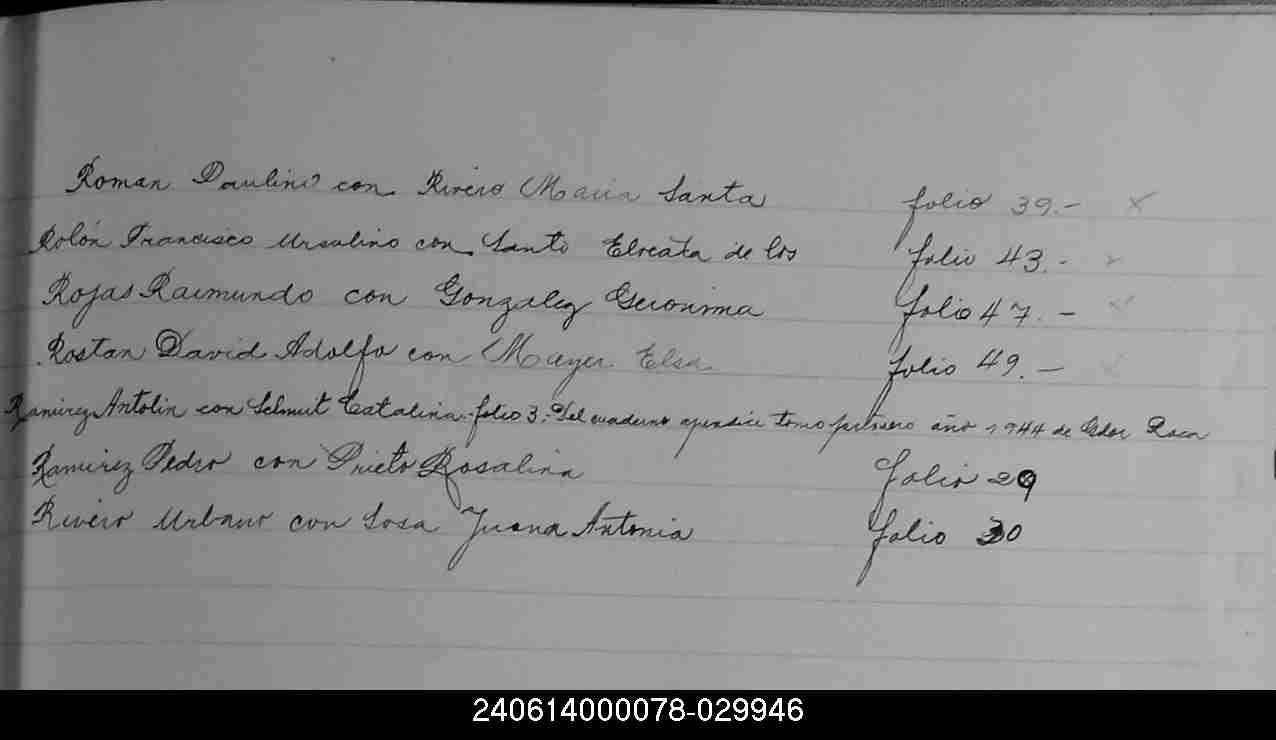 Roman Paulino con Rivero Maria Santa folio 39.- x
Rolón Francisco Ursulino con Santo de los folio 43.-
Rojas Raimundo con Gonzalez Geronima folio 47.-
Rostan David Adolfo con Mayer Elsa folio 49.-
Ramirez Antolin con Schmit Catalina.- folio 3.- Del cuaderno apendice tomo primero año 1944 de Roca
Ramirez Pedro con Prieto Rosalina folio 29
Rivero Urbano con Sosa Juana Antonia folio 30
240614000078-029946